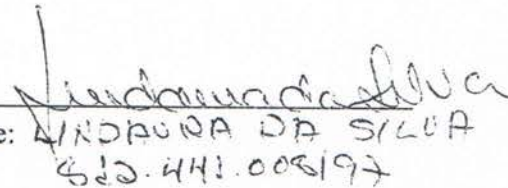 Lindaura da Silva
e: LINDAURA DA SILVA
812.441.008/97